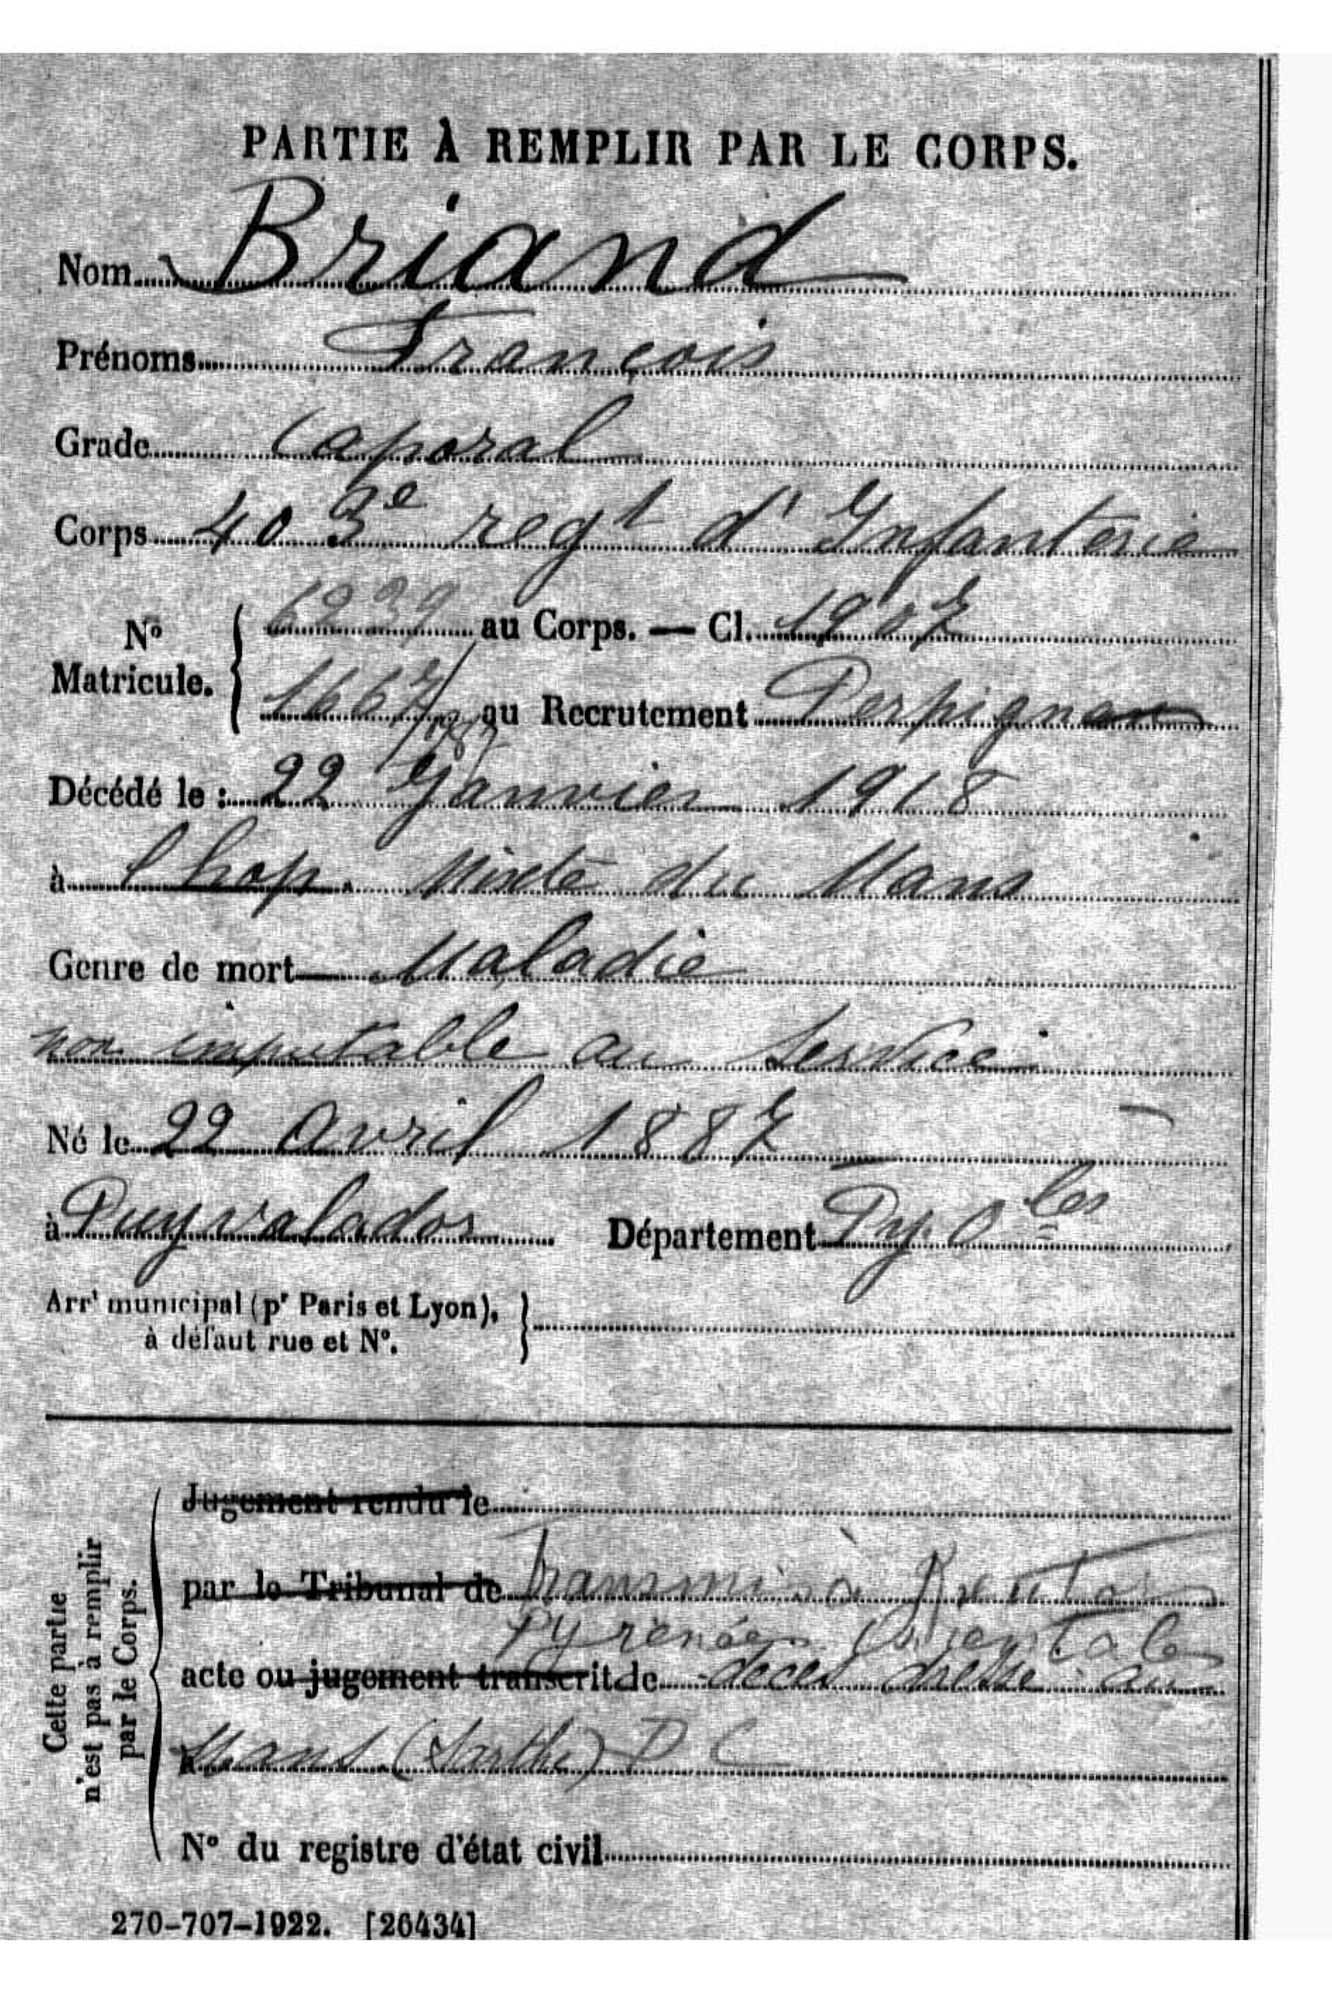 PARTIE À REMPLIR PAR LE CORPS.
Nom Briand
Prénoms François
Grade Caporal
Corps 403e regt d'Infanterie
No Matricule. 6239 au Corps. — Cl. 1907
1667 au Recrutement Perpignan
Décédé le : 22 Janvier 1918
à l'hop. Mixte du Mans
Genre de mort Maladie
non imputable au Service
Né le 22 Avril 1887
à Puyvalador Département Py. Oles
Arrt municipal (pr Paris et Lyon),
à défaut rue et No.
Cette partie
n'est pas à remplir
par le Corps.
Jugement rendu le
par le Tribunal de Transmis à
Pyrénées Orientales
acte ou jugement transcrit de décès dressé au
Mans (Sarthe) D C
No du registre d'état civil
270-707-1922. [26434]